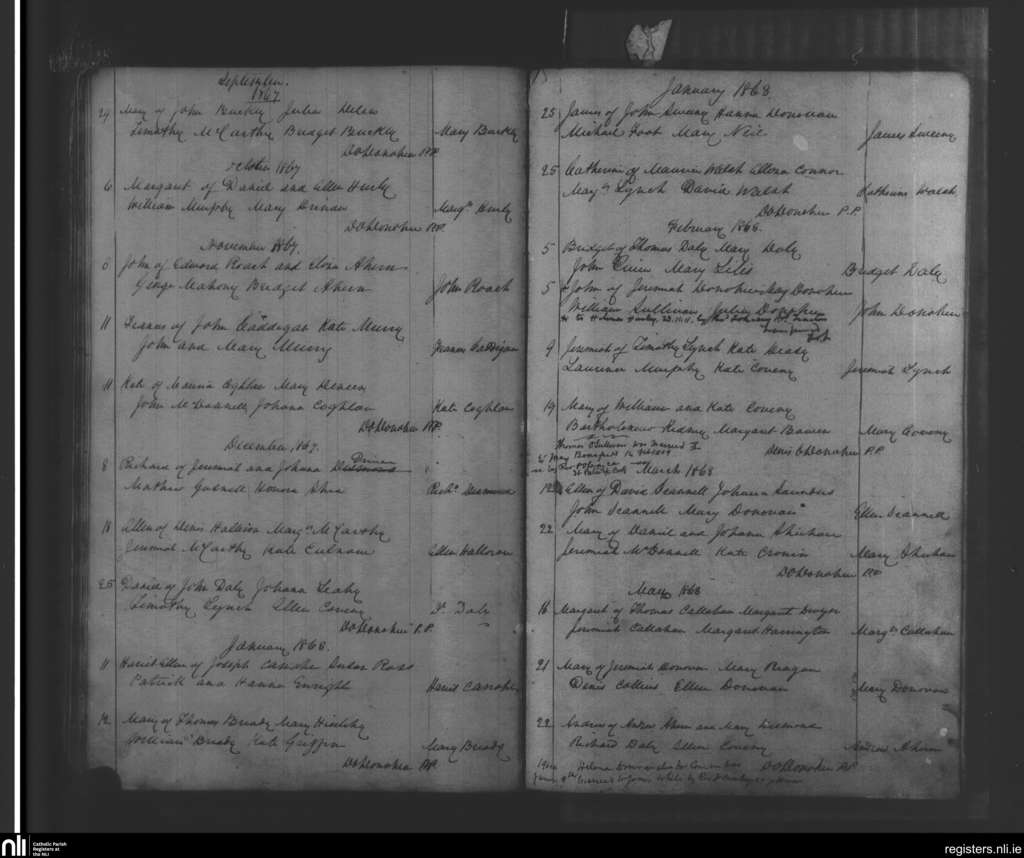 September.
1867
29 Mary of John Buckly Julia Helen
Timothy McCarthy Bridget Buckly Mary Buckly
D O'Donohue P.P.
October 1867
6 Margaret of Daniel and Ellen Hurly
William Murphy Mary Drinan Margt Hurly
D O'Donohue P.P.
November 1867.
6 John of Edward Roach and Ahern
George Mahony Bridget Ahern John Roach
11 Francis of John Caddigan Kate Murry
John and Mary Murry Francis Caddigan
11 Kate of Maurice Coghlan Mary
John McDonnell Johana Coghlan Kate Coghlan
D O'Donohue P.P.
December, 1867.
Drinan
8 Richard of Jeremiah and Johana Desmond
Mathew Honora Shea Richd Desmond
18 Ellen of Denis Halloran Margt McCarthy
Jeremiah McCarthy Kate Ellen Halloran
25 David of John Daly Johana Leahy
Timothy Lynch Ellen Coveny Dd Daly
D O'Donohue P.P.
January 1868.
11 Harriet Ellen of Joseph Susan Ross
Patrick and Hanna Enright Harriet
12 Mary of Thomas Bready Mary
William Bready Kate Griffin Mary Bready
D O'Donohue P.P.
January 1868
25 James of John Sweeny Hanna Donovan
Michael Foot Mary Neil James Sweeny
25 Catherine of Maurice Walsh Ellena Connor
Mary Lynch David Walsh Katherine Walsh
D O'Donohue P.P.
February 1868.
5 Bridget of Thomas Daly Mary Daly
John Mary Bridget Daly
5 John of Jeremiah Donohue May Donohue
William Sullivan Julia John Donohue
to Hurly by Rev
9 Jeremiah of Timothy Lynch Kate
Laurence Murphy Kate Coveny Jeremiah Lynch
19 Mary of William and Kate Coveny
Bartholomew Kidney Margaret Bowen Mary Coveny
Thomas O'Sullivan was married
to May Denis O'Donohue P.P.
by Rev March 1868
12 Ellen of David Scannell Johana Saunders
John Scannell Mary Donovan Ellen Scannell
22 Mary of Daniel and Johana Shinhan
Jeremiah McDonnell Kate Cronin Mary Shinhan
D O'Donohue P.P.
May 1868
16 Margaret of Thomas Callahan Margaret Dwyer
Jeremiah Callahan Margaret Harrington Margt Callahan
21 Mary of Jeremiah Donovan Mary Reagan
Denis Collins Ellen Donovan Mary Donovan
22 Andrew of Andrew Ahern and Mary Desmond
Richard Daly Ellen Coveny Andrew Ahern
Helena D O'Donohue P.P.
married to James White by Rev
nli
Catholic Parish
Registers at
the NLI
registers.nli.ie